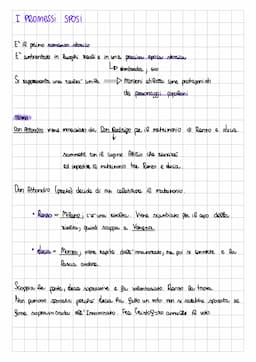 I PROMESSI SPOSI
E' il primo romanzo storico
E' ambientato in luoghi reali e in una precisa epoca storica
Si rappresenta una realtà umile Manzoni utilizza come protagonisti
dei personaggi popolari
TRAMA
Don Abbondio viene minacciato da Don Rodrigo per il matrimonio di Renzo e Lucia.
ed impedire il matrimonio tra Renzo e Lucia.
Don Abbondio (prete) decide di non celebrare il matrimonio.
• Renzo → Milano, c'è una rivolta. Viene scambiato per il capo della
rivolta, quindi scappa a
• Lucia → Monza, viene rapita dall' innominato, ma poi si converte e la
lascia andare.
Scoppia la peste, Lucia sopravvive e fa volontariato. Renzo la trova.
Non possono sposarsi perché Lucia ha fatto un voto: non si sarebbe sposata se
fosse sopravvissuta all' Innominato. Fra Cristoforo annulla il voto.